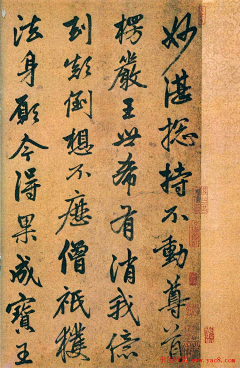 妙湛捴持不動尊首
楞嚴王世希有消我億
劫顛倒想不歷僧祇獲
法身願今得果成寶王
www.yac8.com